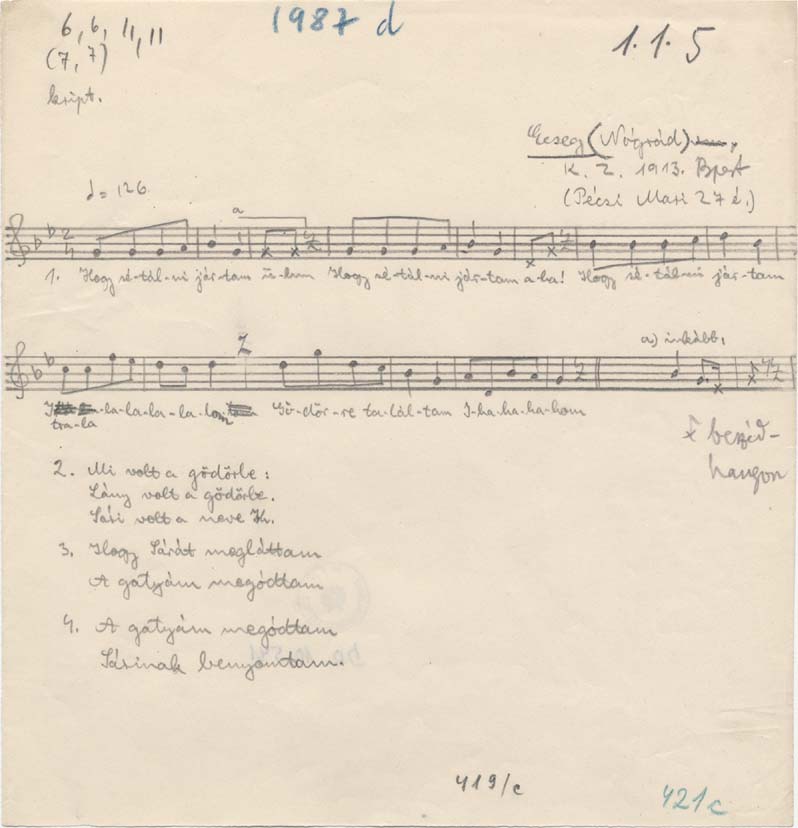 6, 6, 11, 11
(7, 7)
kript.
1987 d
1.1.5
Ecseg (Nógrád)
K. Z. 1913. Bpest
(Péczi Mari 27 é.)
♩= 126
a
1. Hogy sé-tál-ni jár-tam Hogy sé-tál-ni jár-tam a-ha! Hogy sé-tál-ni jár-tam
a) inkább:
-la-la-la-la-lom Gö-dör-re ta-lál-tam I-ha-ha-ha-hom
tra-la
x beszéd-
hangon
2. Mi volt a gödörbe:
Lány volt a gödörbe.
Sári volt a neve
3. Hogy Sárát megláttam
A gatyám megódtam
4. A gatyám megódtam
Sárinak benyomtam.
419/c
421c